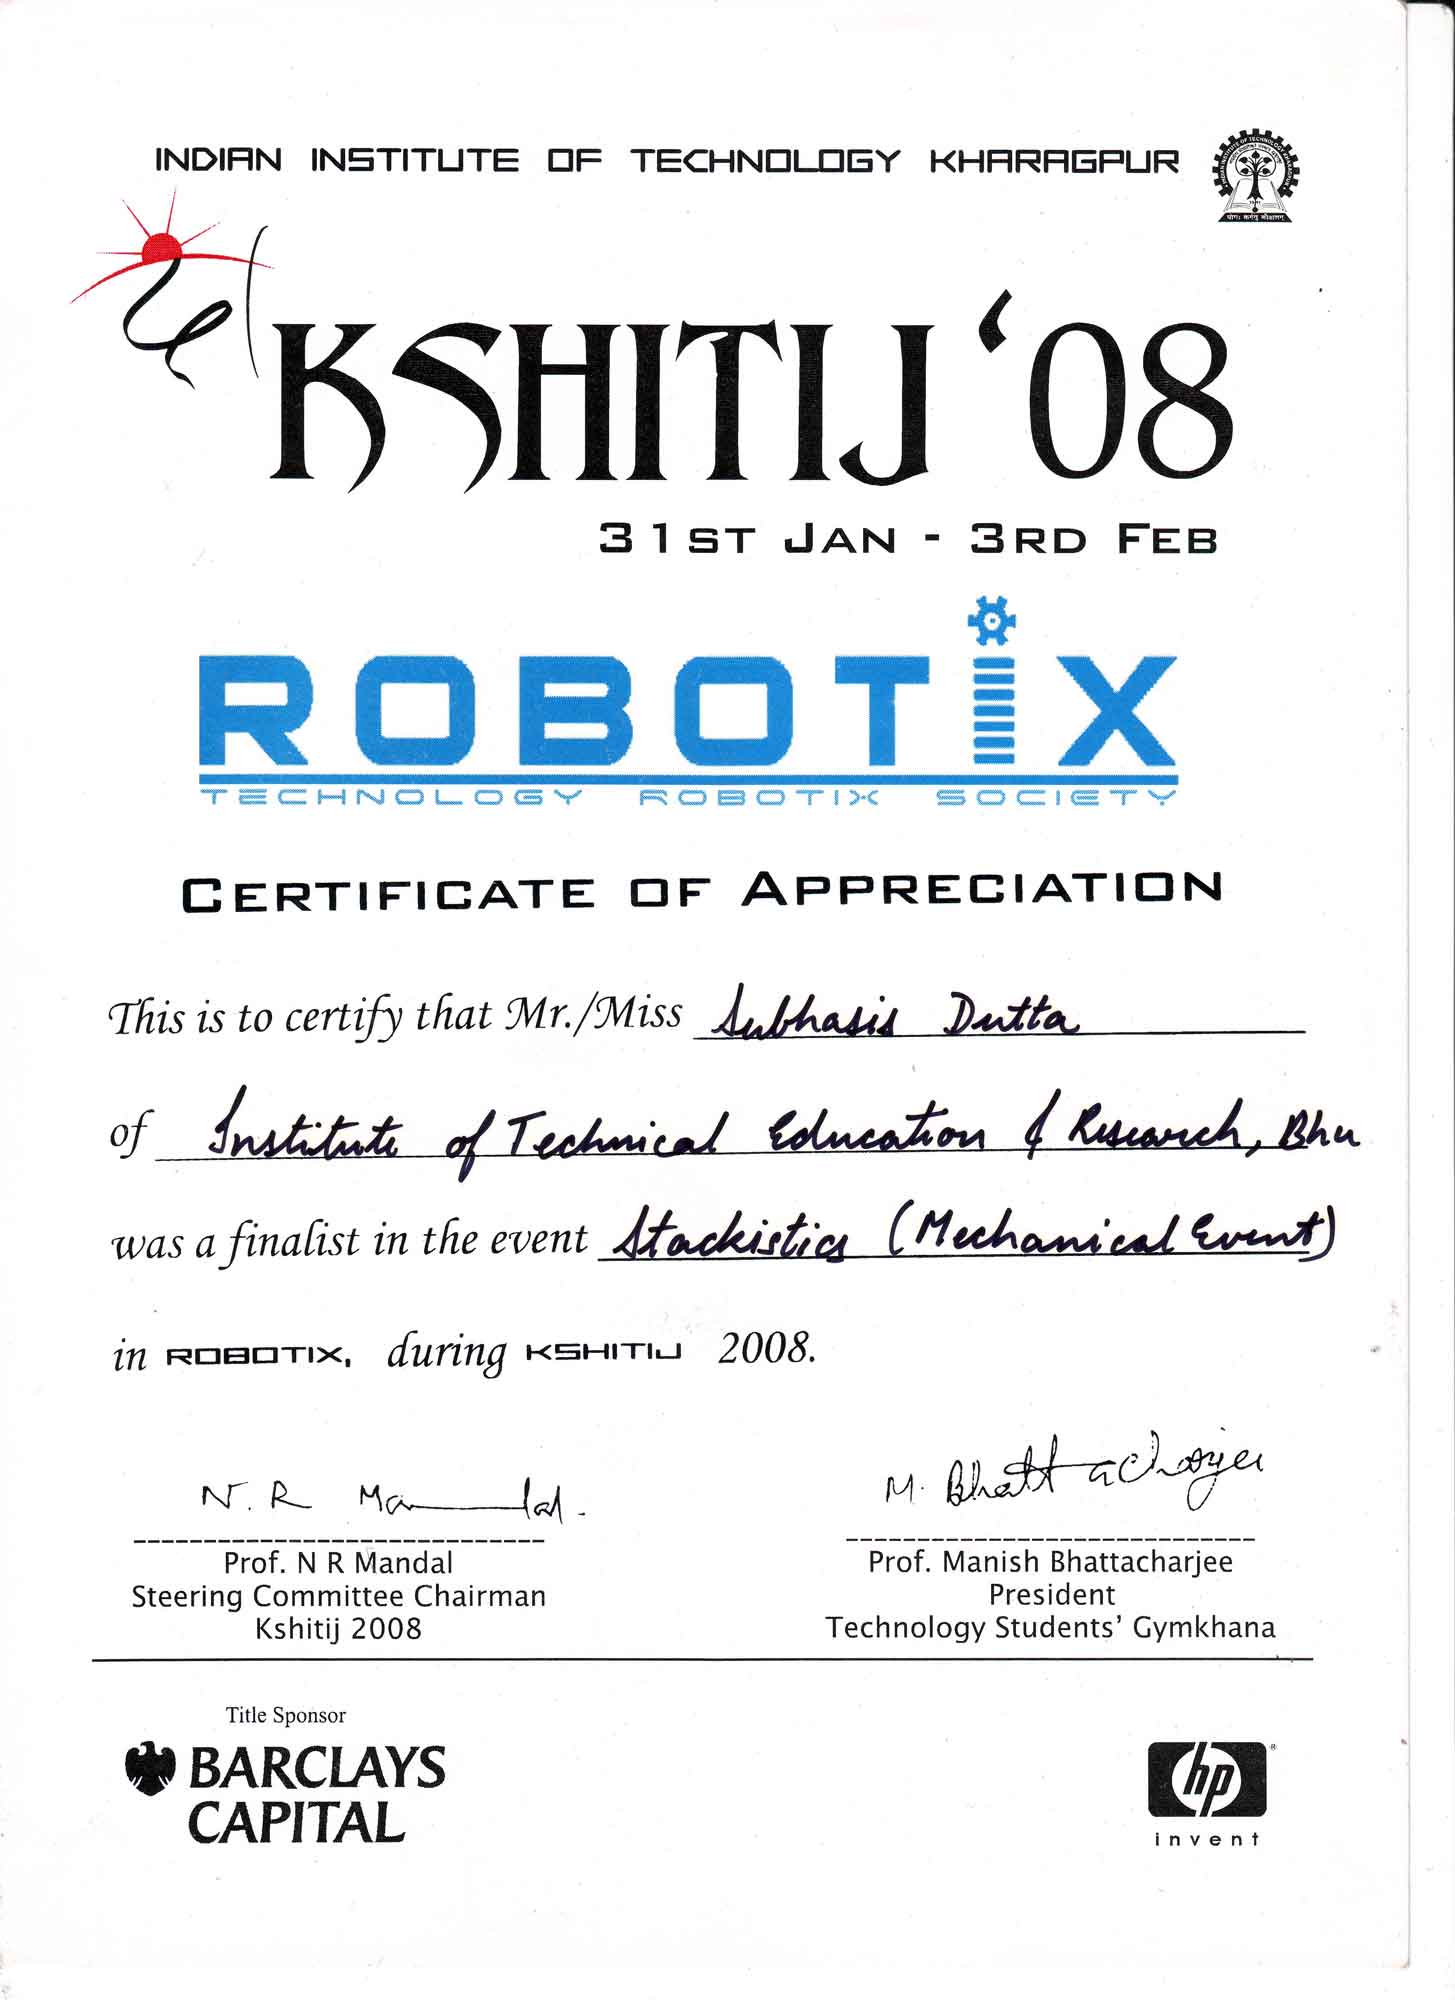 INDIAN INSTITUTE OF TECHNOLOGY KHARAGPUR
KSHITIJ '08
31ST JAN - 3RD FEB
ROBOTIX
TECHNOLOGY ROBOTIX SOCIETY
CERTIFICATE OF APPRECIATION
This is to certify that Mr./Miss Subhasis Dutta
of Institute of Technical Education & Research, Bhu
was a finalist in the event Stackistics (Mechanical Event)
in ROBOTIX, during KSHITIJ 2008.
N. R Mandal.
M. Bhattacharjee
Prof. N R Mandal
Steering Committee Chairman
Kshitij 2008
Prof. Manish Bhattacharjee
President
Technology Students' Gymkhana
Title Sponsor
BARCLAYS
CAPITAL
hp
invent